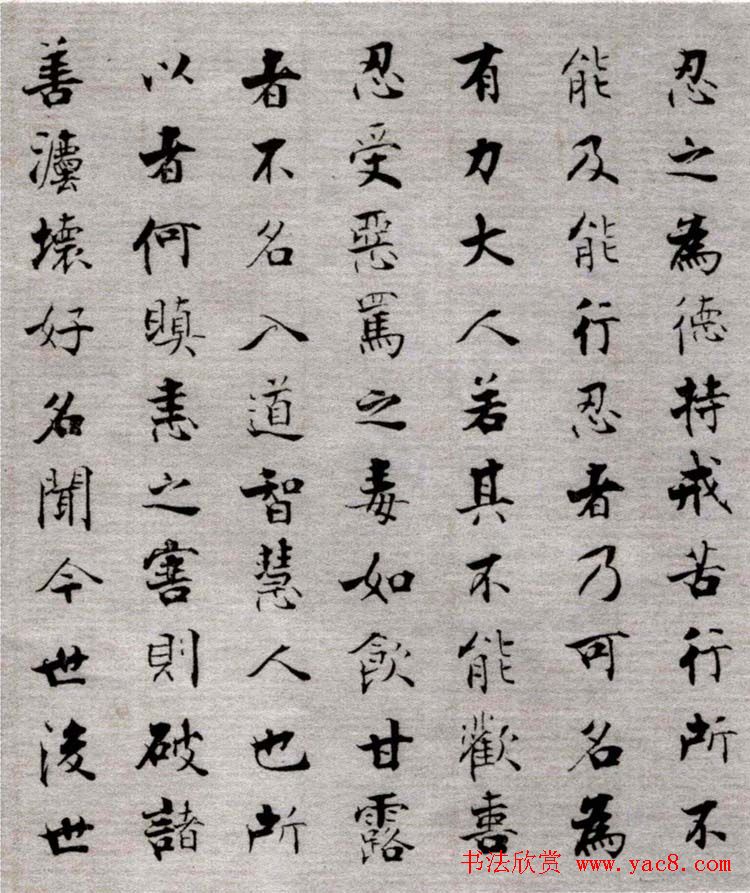 忍之為德持戒苦行所不
能及能行忍者乃可名為
有力大人若其不能歡喜
忍受惡罵之毒如飲甘露
者不名入道智慧人也所
以者何瞋恚之害則破諸
善灋壞好名聞今世後世
书法欣赏 www.yac8.com